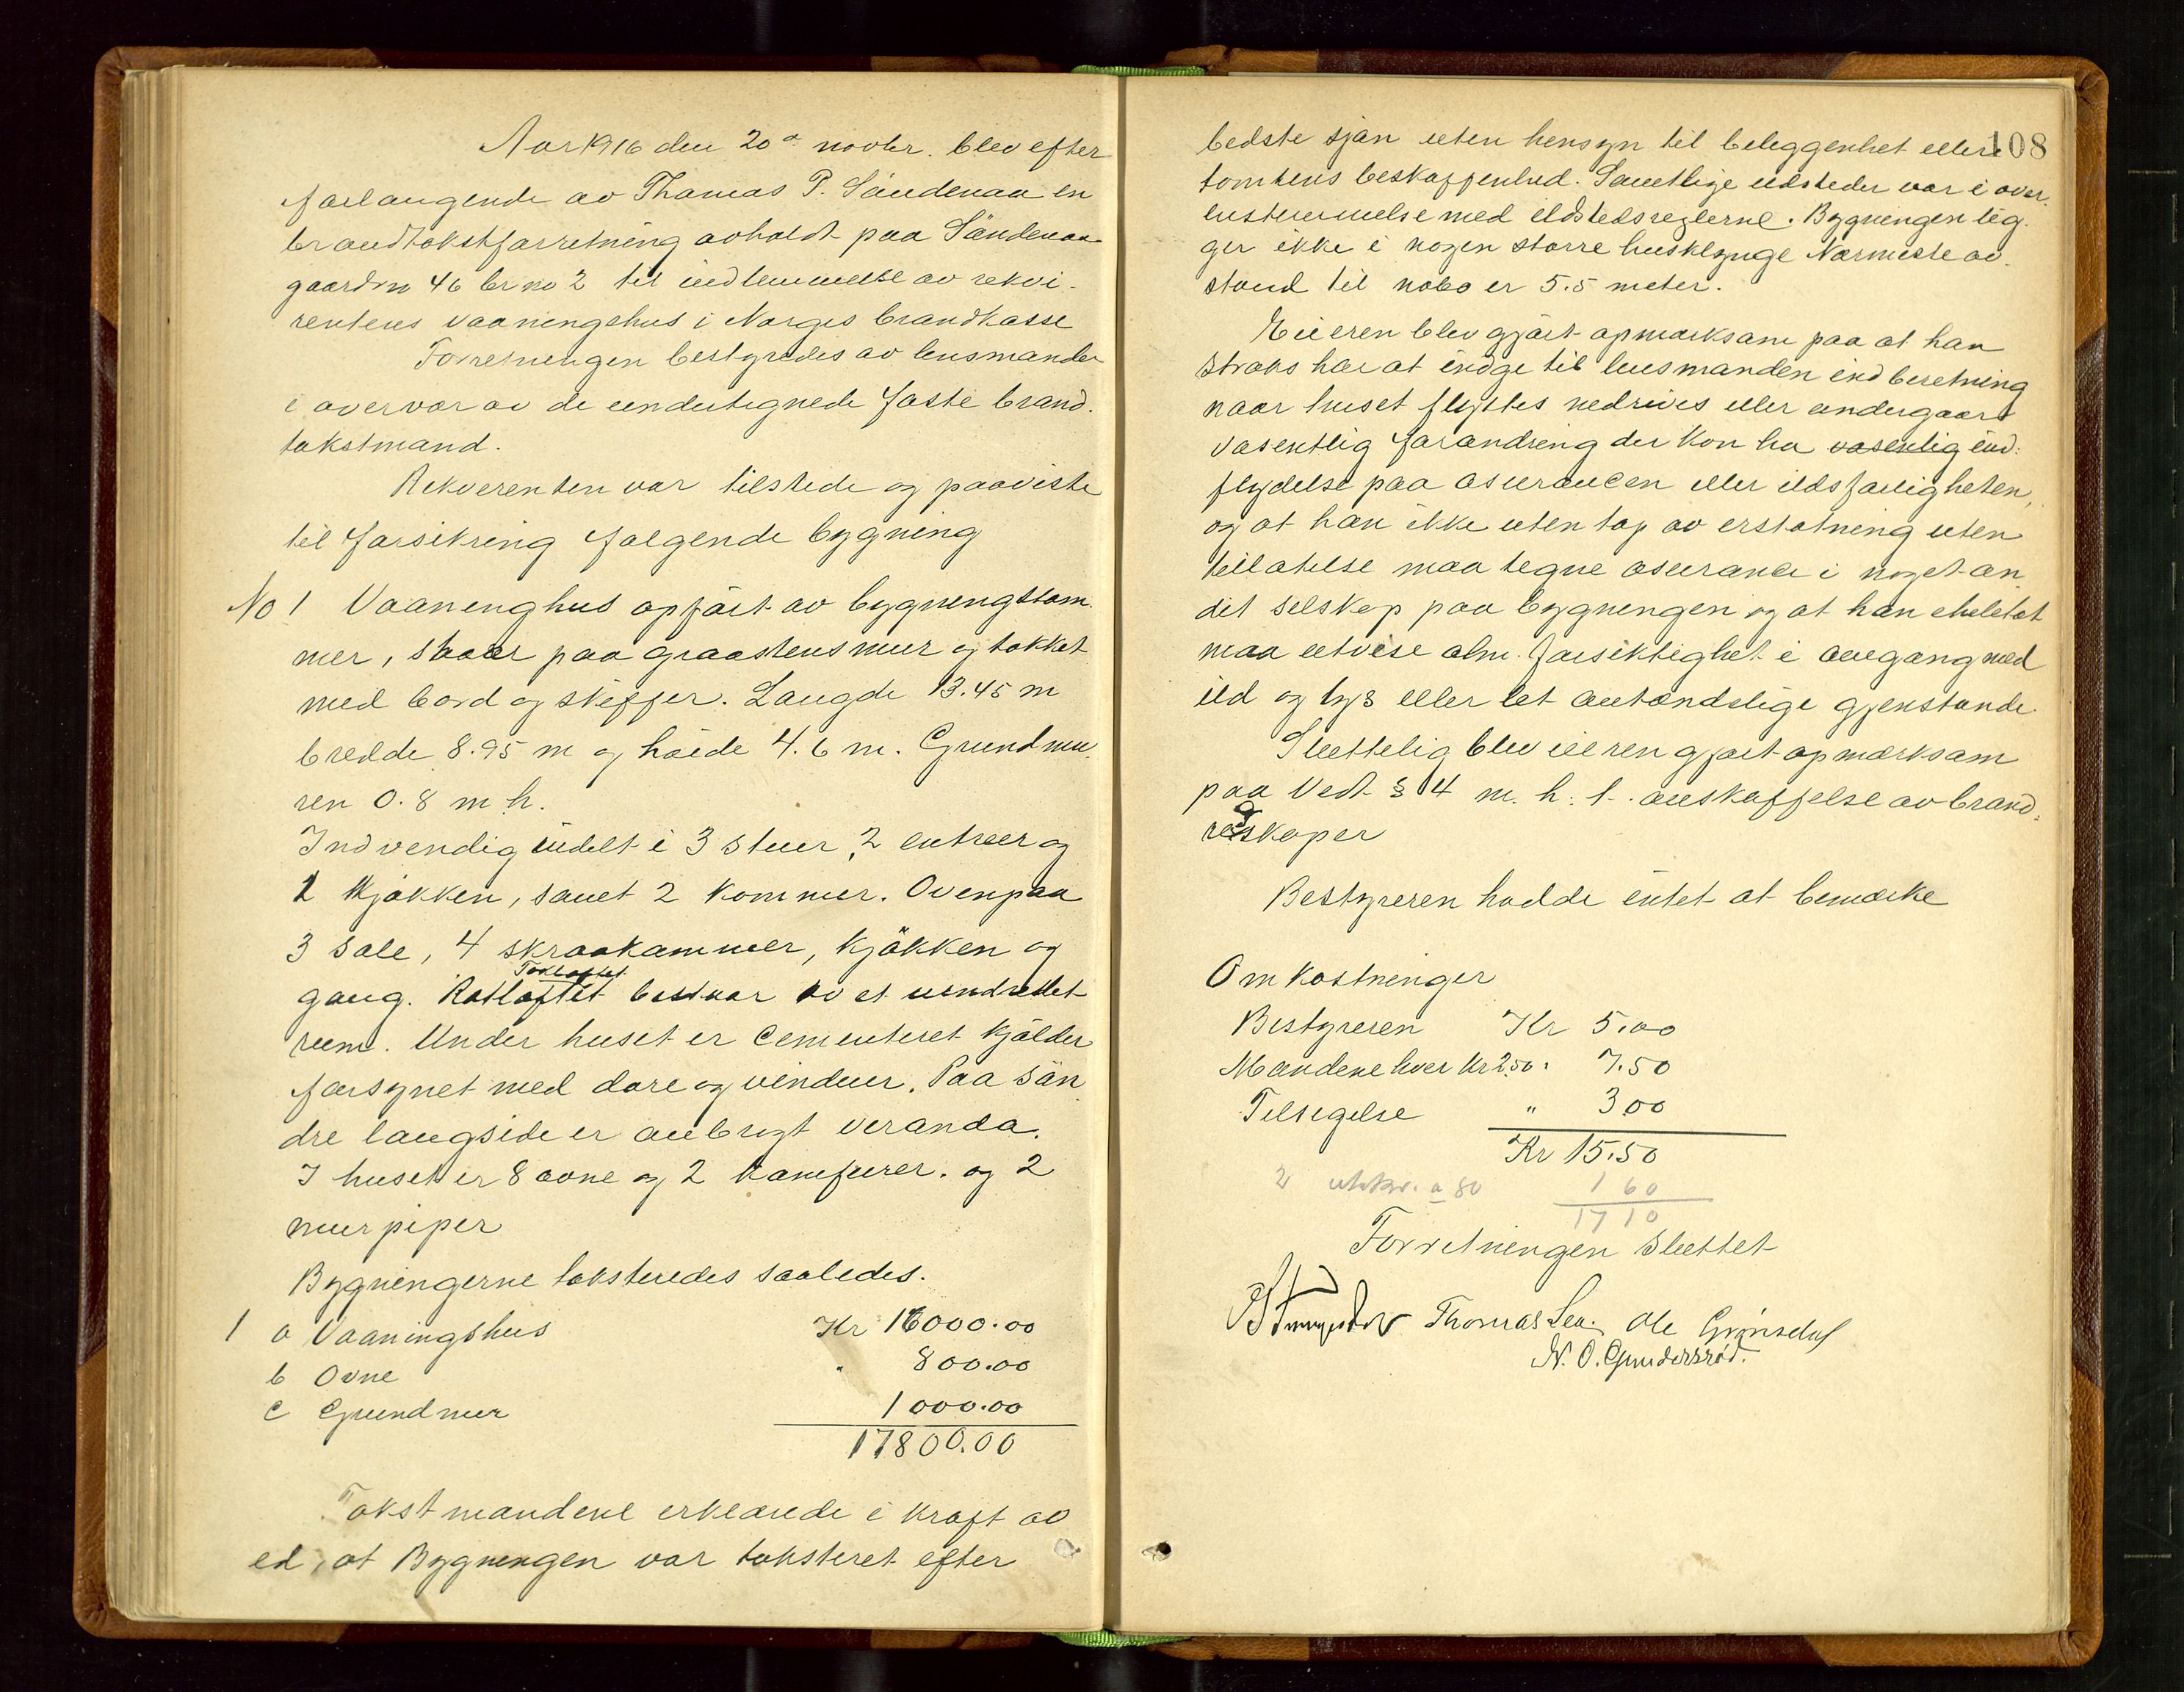 Aar 1916 den 20de novbr. blev efter
forlangende av Thomas P. Söndenaa en
brandtakstforretning avholdt paa Söndenaa
gaardsno 46 br no 2 til indlemmelse av rekvi-
rentens vaaningshus i Norges brandkasse
Forretningen bestyredes av lensmanden
i overvær av de undertegnede faste brand-
takstmænd.
Rekverenten var tilstede og paaviste
til forsikring følgende bygning
No 1 Vaaninghus opført av bygningstøm-
mer, staar paa graastensmur og tækket
med bord og skiffer. Længde 13.45 m
bredde 8.95 m og høide 4.6 m. Grundmu-
ren 0.8 m h.
Indvendig indelt i 3 stuer, 2 entreer og
1 kjøkken, samt 2 kammer. Ovenpaa
3 sale, 4 skraakammer, kjökken og
Takloftet
gang. Rotloftet bestaar av et uindredet
rum. Under huset er cementeret kjälder
forsynet med døre og vinduer. Paa sön-
dre langside er anbragt veranda.
I huset er 8 ovne og 2 komfurer. og 2
murpiper
Bygningerne taksteredes saaledes.
1 a Vaaningshus Kr 16000.00
b Ovne " 800.00
c Grundmur 1000.00
17800.00
Takstmændene erklærede i kraft av
ed, at Bygningen var taksteret efter
108
bedste sjøn uten hensyn til beleggenhet eller
tomtens beskaffenhed. Samtlige ildsteder var i over-
enstemmelse med ildstedsreglerne. Bygningen lig-
ger ikke i nogen større husklynge Nærmeste av-
stand til nabo er 5.5 meter.
Eieren blev gjørt opmærksam paa at han
straks har at indge til lensmanden indberetning
naar huset flyttes nedrives eller undergaar
væsentlig forandring der kan ha væsentlig ind-
flydelse paa asurancen eller ildsfarligheten,
og at han ikke uten tap av erstatning uten
tillatelse maa tegne asurance i noget an-
det selskap paa bygningen og at han
maa utvise alm. forsiktighet i omgang med
ild og lys eller let antændelige gjenstande.
Sluttelig blev eieren gjort opmærksam
paa Vedt § 14 m. h. t. anskaffelse av brand-
redskaper
Bestyreren hadde intet at bemærke
Omkostninger
Bestyreren Kr 5.00
Mændene hver Kr 2.50. 7.50
Tilsigelse " 3.00
Kr 15.50
2 utskr. a 80 1 60
17 10
Forretningen sluttet
Thomas Lea. Ole Grönsdal
N. O. Gundersrød.